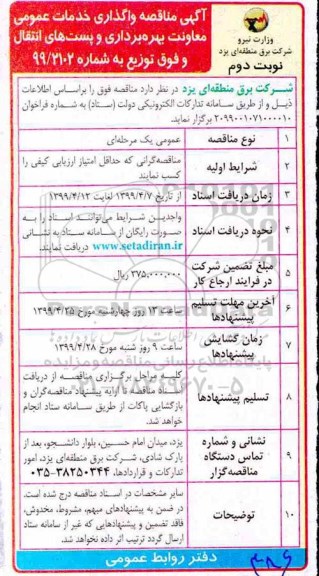 آگهی مناقصه واگذاری خدمات عمومی
معاونت بهره‌برداری و پست‌های انتقال
و فوق توزیع به شماره ۹۹/۲۱۰۲
وزارت نیرو
شرکت برق منطقه‌ای یزد
نوبت دوم
شرکت برق منطقه‌ای یزد در نظر دارد مناقصه فوق را براساس اطلاعات
ذیل و از طریق سامانه تدارکات الکترونیکی دولت (ستاد) به شماره فراخوان
۲۰۹۹۰۰۱۰۷۱۰۰۰۰۱۰ برگزار نماید.
۱ نوع مناقصه عمومی یک مرحله‌ای
۲ شرایط اولیه مناقصه‌گرانی که حداقل امتیاز ارزیابی کیفی را
کسب نمایند
۳ زمان دریافت اسناد از تاریخ ۱۳۹۹/۴/۷ لغایت ۱۳۹۹/۴/۱۲
۴ نحوه دریافت اسناد واجدین شرایط می‌توانند اسناد را به
صورت رایگان از سامانه ستاد به نشانی
www.setadiran.ir دریافت نمایند.
۵ مبلغ تضمین شرکت
در فرایند ارجاع کار
۳۷۵,۰۰۰,۰۰۰ ریال
۶ آخرین مهلت تسلیم
پیشنهادها
ساعت ۱۳ روز چهارشنبه مورخ ۱۳۹۹/۴/۲۵
۷ زمان گشایش
پیشنهادها
ساعت ۹ روز شنبه مورخ ۱۳۹۹/۴/۲۸
۸ تسلیم پیشنهادها کلیه مراحل برگزاری مناقصه از دریافت
اسناد مناقصه تا ارایه پیشنهاد مناقصه‌گران و
بازگشایی پاکات از طریق سامانه ستاد انجام
خواهد شد.
۹ نشانی و شماره
تماس دستگاه
مناقصه‌گزار
یزد، میدان امام حسین، بلوار دانشجو، بعد از
پارک شادی، شرکت برق منطقه‌ای یزد، امور
تدارکات و قراردادها، ۳۸۲۵۰۳۴۴-۰۳۵
۱۰ توضیحات سایر مشخصات در اسناد مناقصه درج شده است.
در ضمن به پیشنهادهای مبهم، مشروط، مخدوش،
فاقد تضمین و پیشنهادهایی که غیر از سامانه ستاد
ارسال گردد ترتیب اثر داده نخواهد شد.
دفتر روابط عمومی